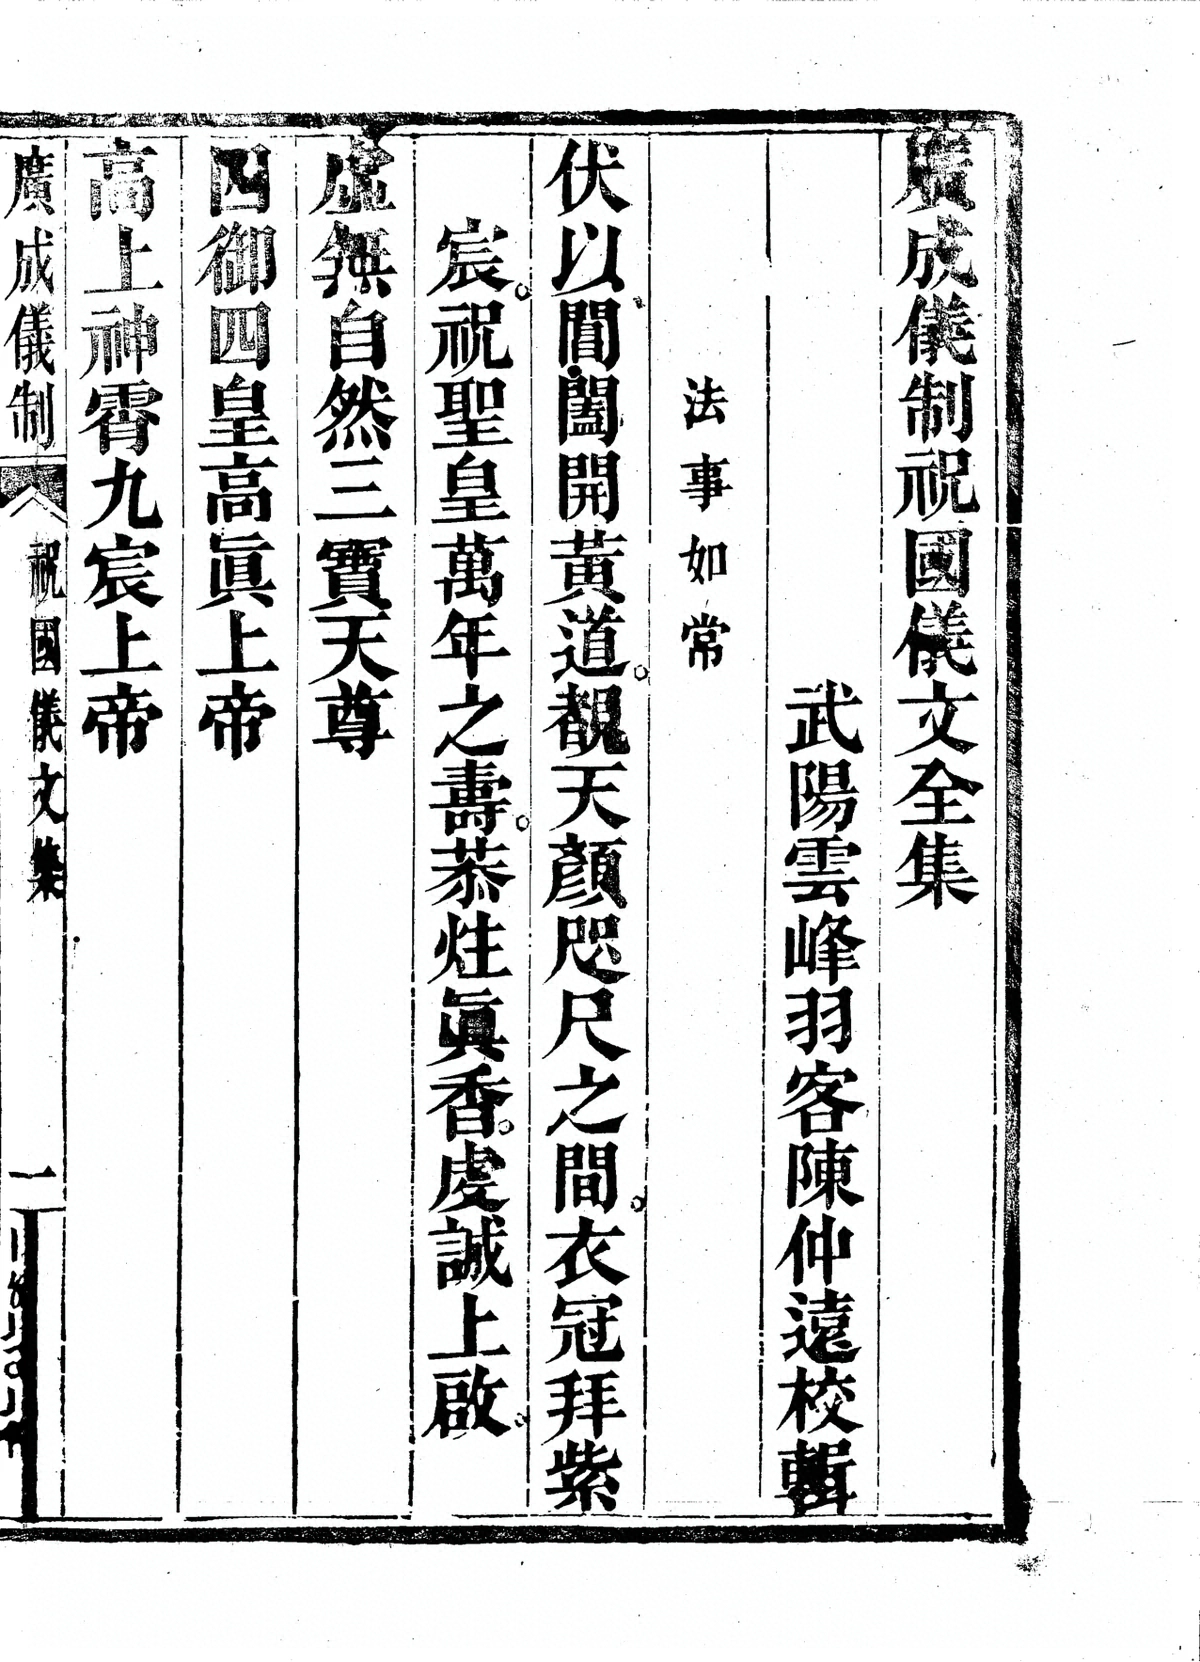 廣成儀制祝國儀文全集
武陽雲峰羽客陳仲遠校輯
法事如常
伏以閶闔開黃道覩天顏咫尺之間衣冠拜紫
宸祝聖皇萬年之壽恭炷眞香虔誠上啟
虛無自然三寶天尊
四御四皇高眞上帝
高上神霄九宸上帝
廣成儀制 祝國儀文集 一